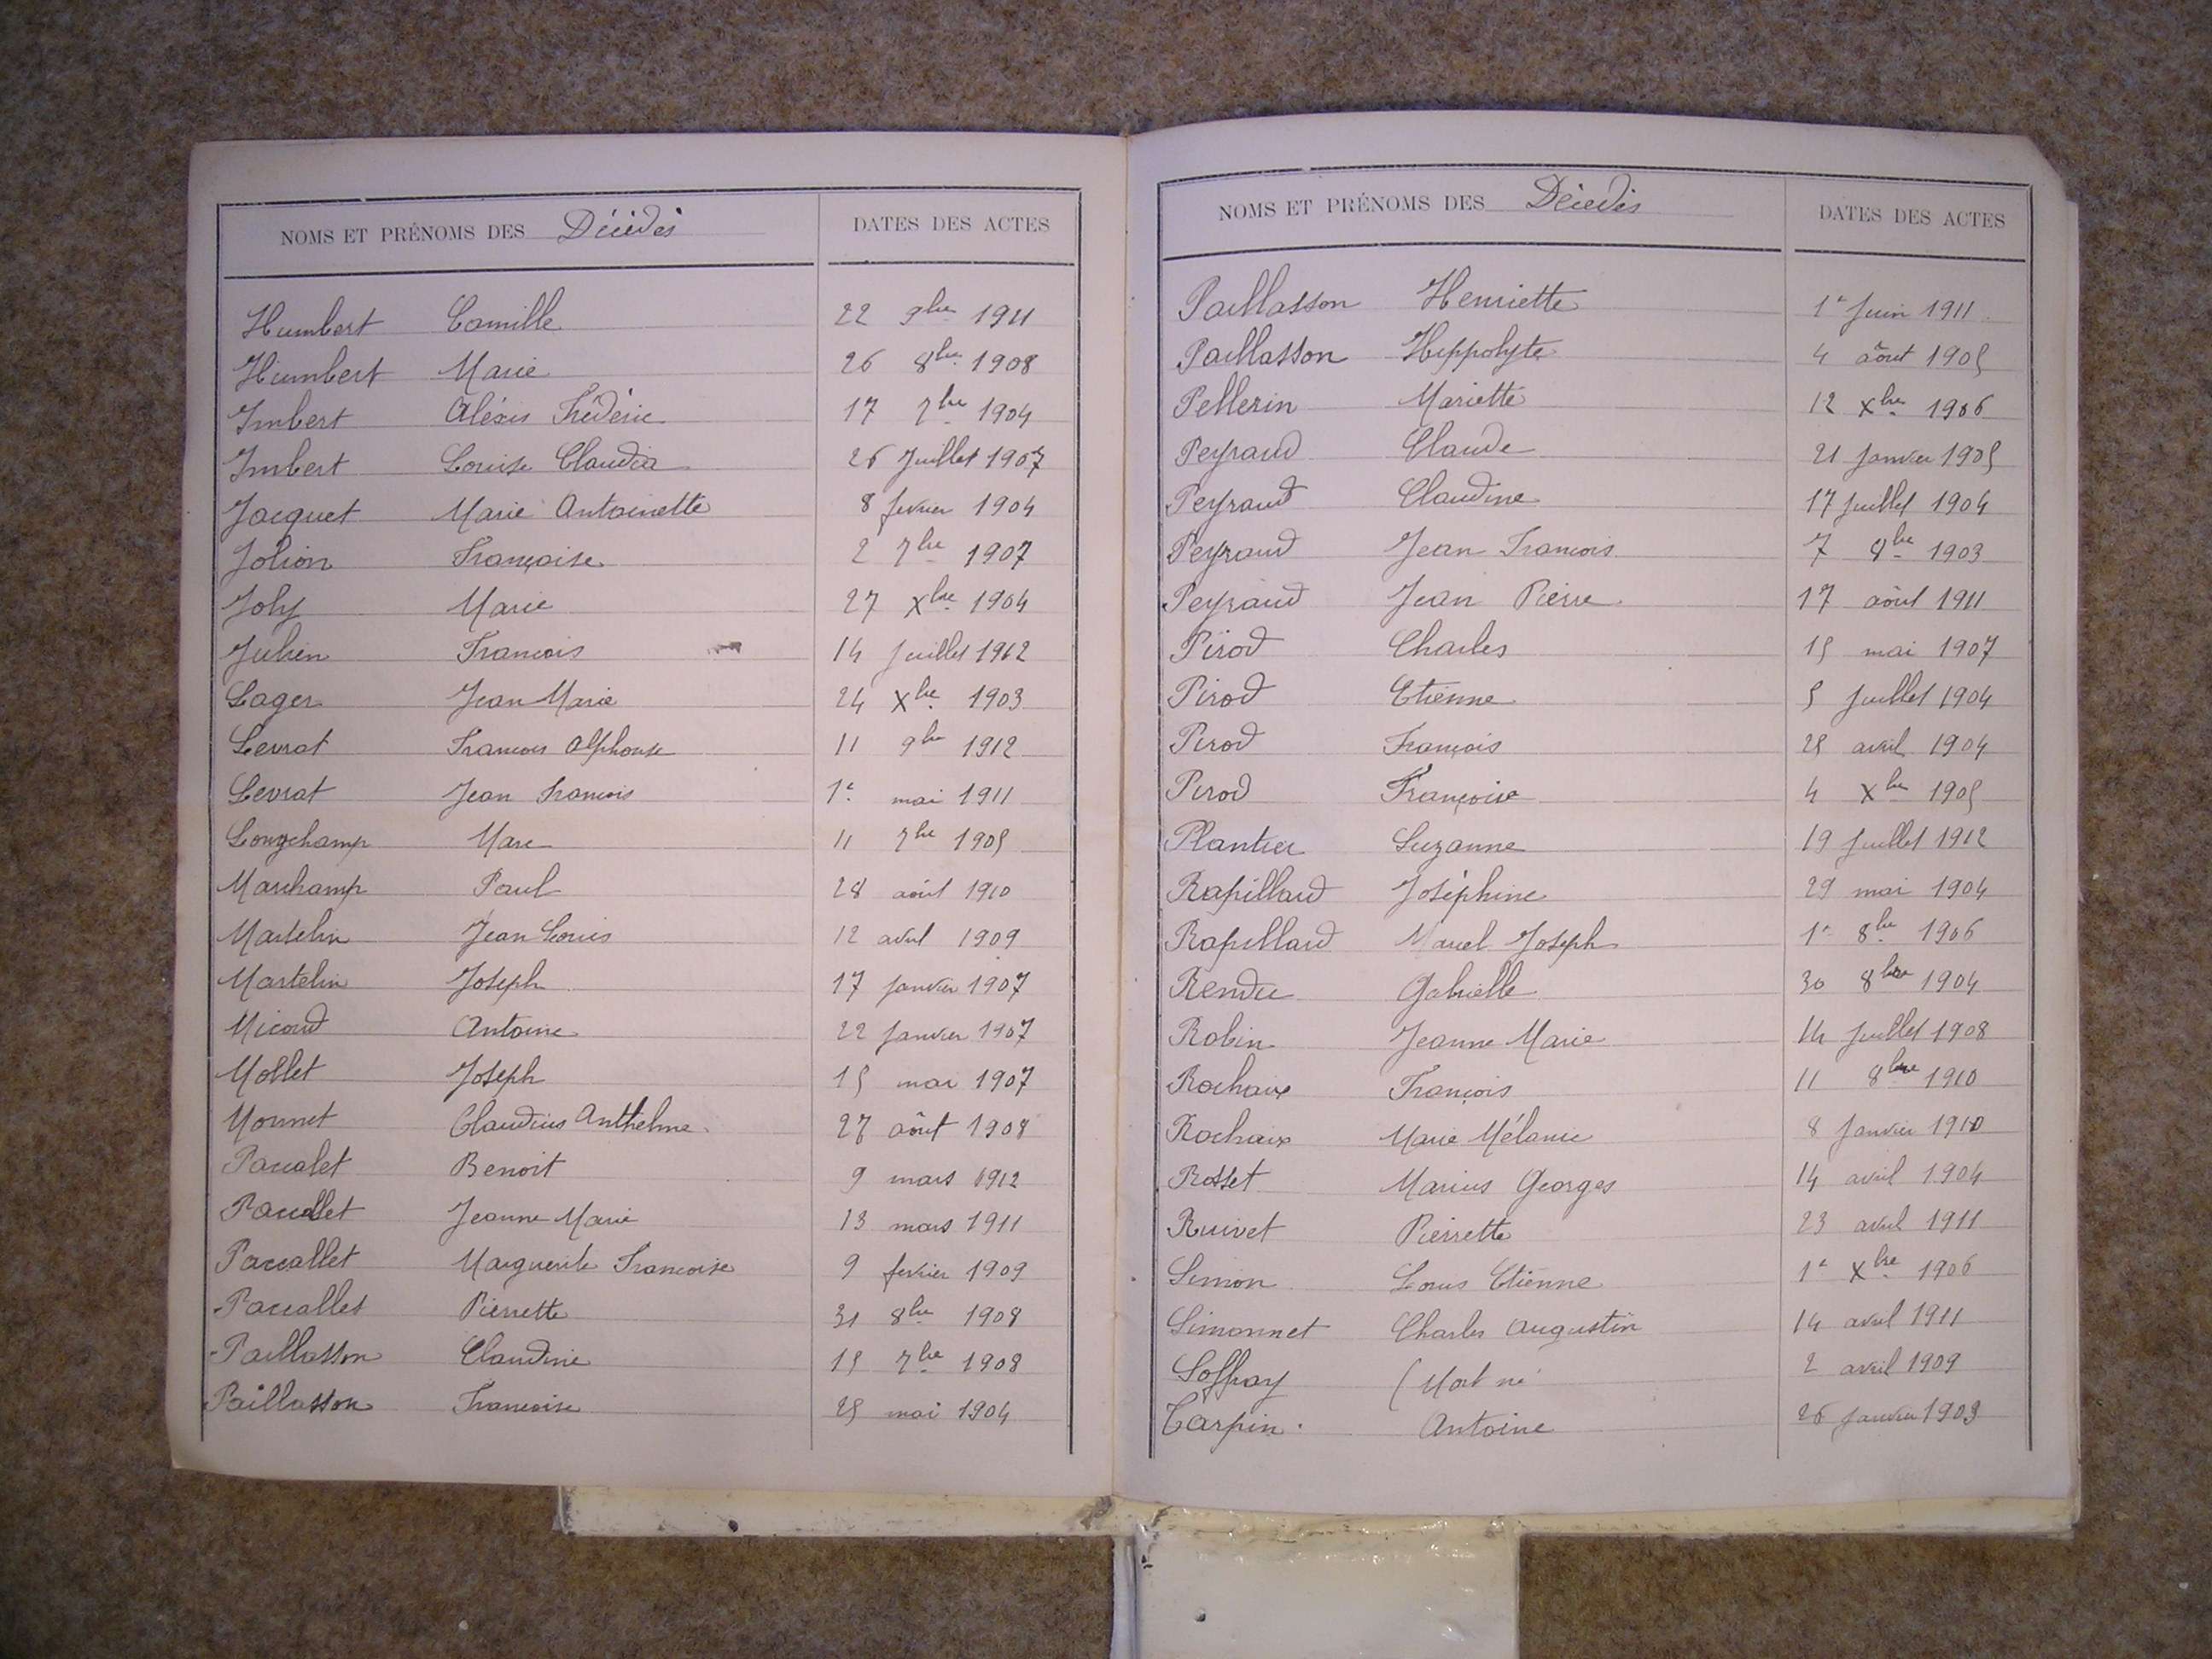 NOMS ET PRÉNOMS DES Décédés DATES DES ACTES
Humbert Camille 22 9bre 1911
Humbert Marie 26 8bre 1908
Imbert Aléxis Frédéric 17 7bre 1904
Imbert Louise Claudia 26 Juillet 1907
Jacquet Marie Antoinette 8 fevrier 1904
Jolion Françoise 2 7bre 1907
Joly Marie 27 Xbre 1904
Julien Francois 14 Juillet 1912
Lager Jean Marie 24 Xbre 1903
Levrat Francois Alphonse 11 9bre 1912
Levrat Jean Francois 1er mai 1911
Longchamp Marc 11 7bre 1905
Marchamp Paul 28 août 1910
Martelin Jean Louis 12 avril 1909
Martelin Joseph 17 janvier 1907
Micoud Antoine 22 janvier 1907
Mollet Joseph 15 mai 1907
Monnet Claudius Anthelme 27 aôut 1908
Paccalet Benoit 9 mars 1912
Paccallet Jeanne Marie 13 mars 1911
Paccallet Marguerite Francoise 9 fevrier 1909
Paccallet Pierrette 31 8bre 1908
Paillasson Claudine 15 7bre 1908
Paillasson Francoise 25 mai 1904
NOMS ET PRÉNOMS DES Décédés DATES DES ACTES
Paillasson Henriette 1er Juin 1911
Paillasson Hippolyte 4 aôut 1905
Pellerin Mariette 12 Xbre 1906
Peyraud Claude 21 janvier 1905
Peyraud Claudine 17 juillet 1904
Peyraud Jean Francois 7 8bre 1903
Peyraud Jean Pierre 17 aôut 1911
Pirod Charles 15 mai 1907
Pirod Etienne 5 Juillet 1904
Pirod François 25 avril 1904
Pirod Françoise 4 Xbre 1905
Plantier Suzanne 19 juillet 1912
Rapillard Joséphine 29 mai 1904
Rapillard Marcel Joseph 1er 8bre 1906
Rendu Gabrielle 30 8bre 1904
Robin Jeanne Marie 14 juillet 1908
Rochaix François 11 8bre 1910
Rochaix Marie Mélanie 8 Janvier 1910
Rosset Marius Georges 14 avril 1904
Ruivet Pierrette 23 avril 1911
Simon Louis Etienne 1er Xbre 1906
Simonnet Charles Augustin 14 avril 1911
Soffray (Mort né 2 avril 1909
Tarpin Antoine 26 janvier 1903